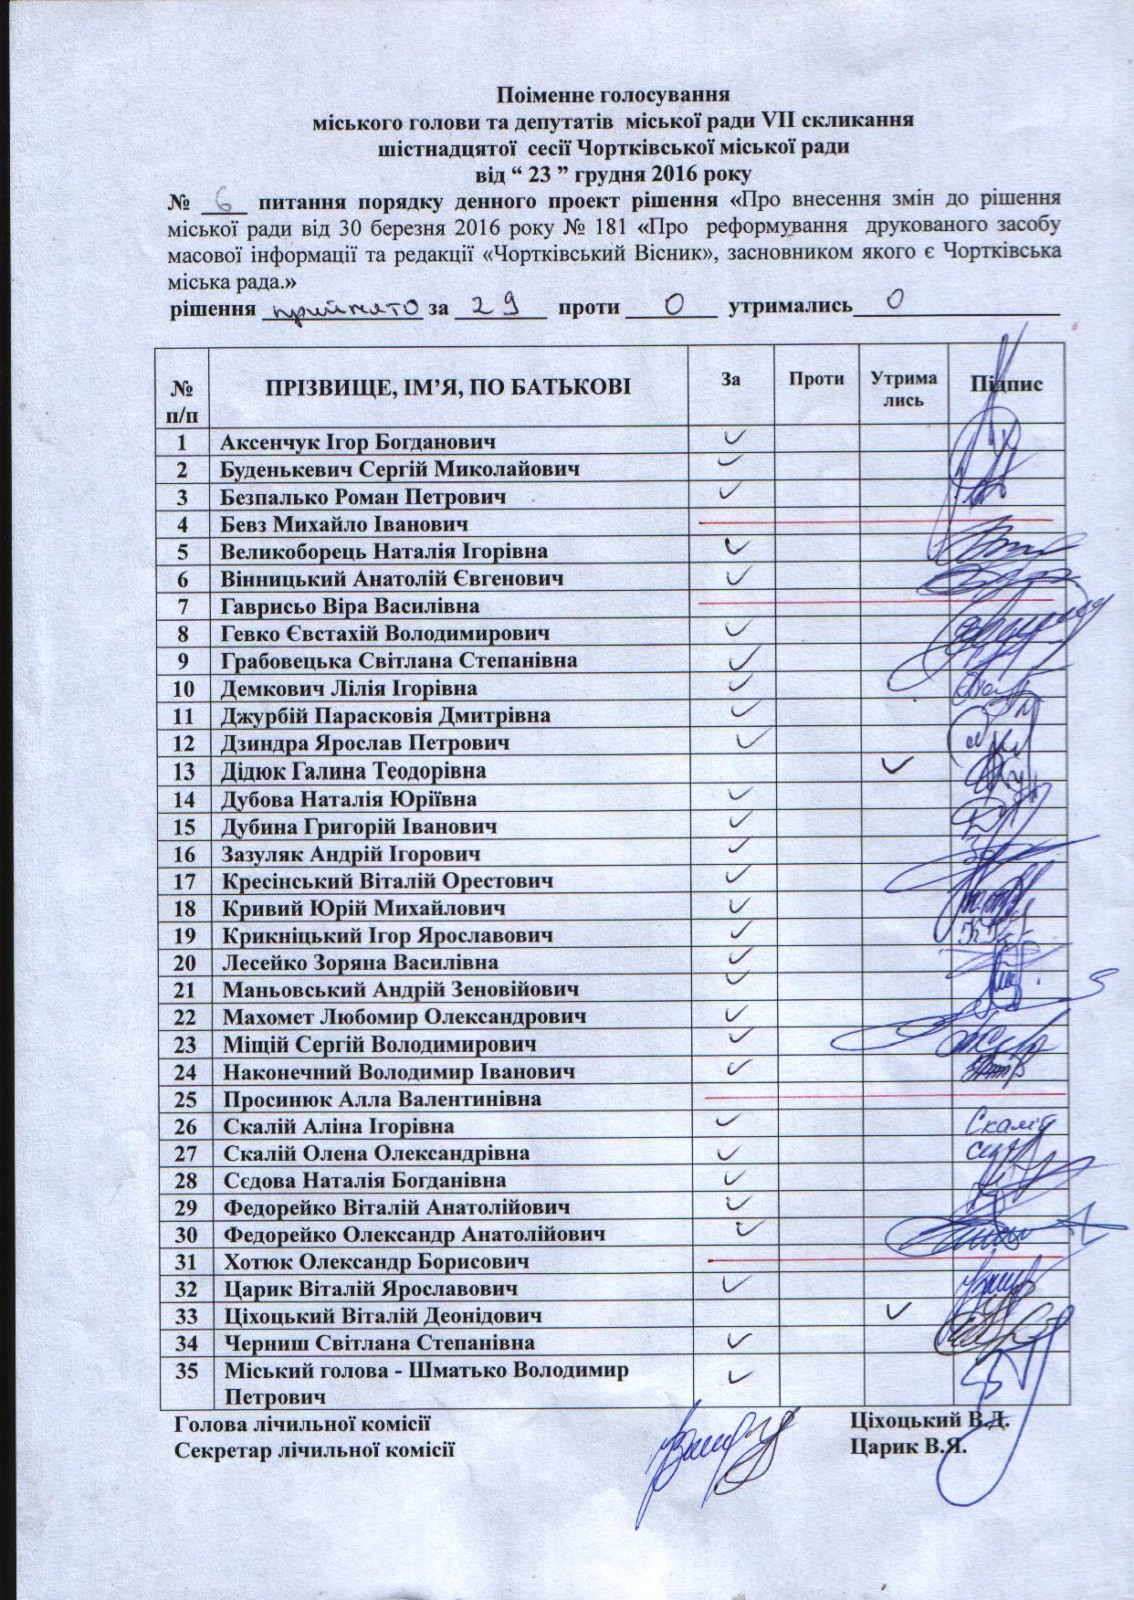 Поіменне голосування
міського голови та депутатів міської ради VII скликання
шістнадцятої сесії Чортківської міської ради
від “ 23 ” грудня 2016 року
№ 6 питання порядку денного проект рішення «Про внесення змін до рішення
міської ради від 30 березня 2016 року № 181 «Про реформування друкованого засобу
масової інформації та редакції «Чортківський Вісник», засновником якого є Чортківська
міська рада.»
рішення прийнято за 29 проти 0 утримались 0
№ п/п ПРІЗВИЩЕ, ІМ’Я, ПО БАТЬКОВІ За Проти Утрима лись Підпис
1 Аксенчук Ігор Богданович ✓
2 Буденькевич Сергій Миколайович ✓
3 Безпалько Роман Петрович ✓
4 Бевз Михайло Іванович
5 Великоборець Наталія Ігорівна ✓
6 Вінницький Анатолій Євгенович ✓
7 Гаврисьо Віра Василівна
8 Гевко Євстахій Володимирович ✓
9 Грабовецька Світлана Степанівна ✓
10 Демкович Лілія Ігорівна ✓
11 Джурбій Парасковія Дмитрівна ✓
12 Дзиндра Ярослав Петрович ✓
13 Дідюк Галина Теодорівна ✓
14 Дубова Наталія Юріївна ✓
15 Дубина Григорій Іванович ✓
16 Зазуляк Андрій Ігорович ✓
17 Кресінський Віталій Орестович ✓
18 Кривий Юрій Михайлович ✓
19 Крикніцький Ігор Ярославович ✓
20 Лесейко Зоряна Василівна ✓
21 Маньовський Андрій Зеновійович ✓
22 Махомет Любомир Олександрович ✓
23 Міщій Сергій Володимирович ✓
24 Наконечний Володимир Іванович ✓
25 Просинюк Алла Валентинівна
26 Скалій Аліна Ігорівна ✓
27 Скалій Олена Олександрівна ✓
28 Сєдова Наталія Богданівна ✓
29 Федорейко Віталій Анатолійович ✓
30 Федорейко Олександр Анатолійович ✓
31 Хотюк Олександр Борисович
32 Царик Віталій Ярославович ✓
33 Ціхоцький Віталій Деонідович ✓
34 Черниш Світлана Степанівна ✓
35 Міський голова - Шматько Володимир
Петрович ✓
Голова лічильної комісії Ціхоцький В.Д.
Секретар лічильної комісії Царик В.Я.